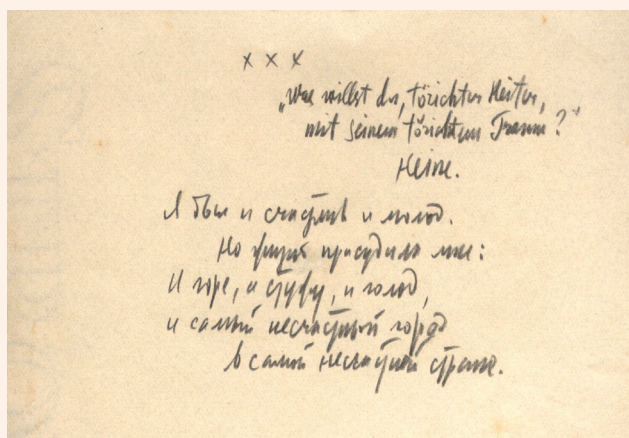 x x x
„Was willst du, törichter Reiter,
mit seinem törichten Traum?"
Heine.
Я был и счастлив и молод.
Но присудила мне:
И горе, и стужу, и голод,
и самый несчастный город
в самой несчастной стране.